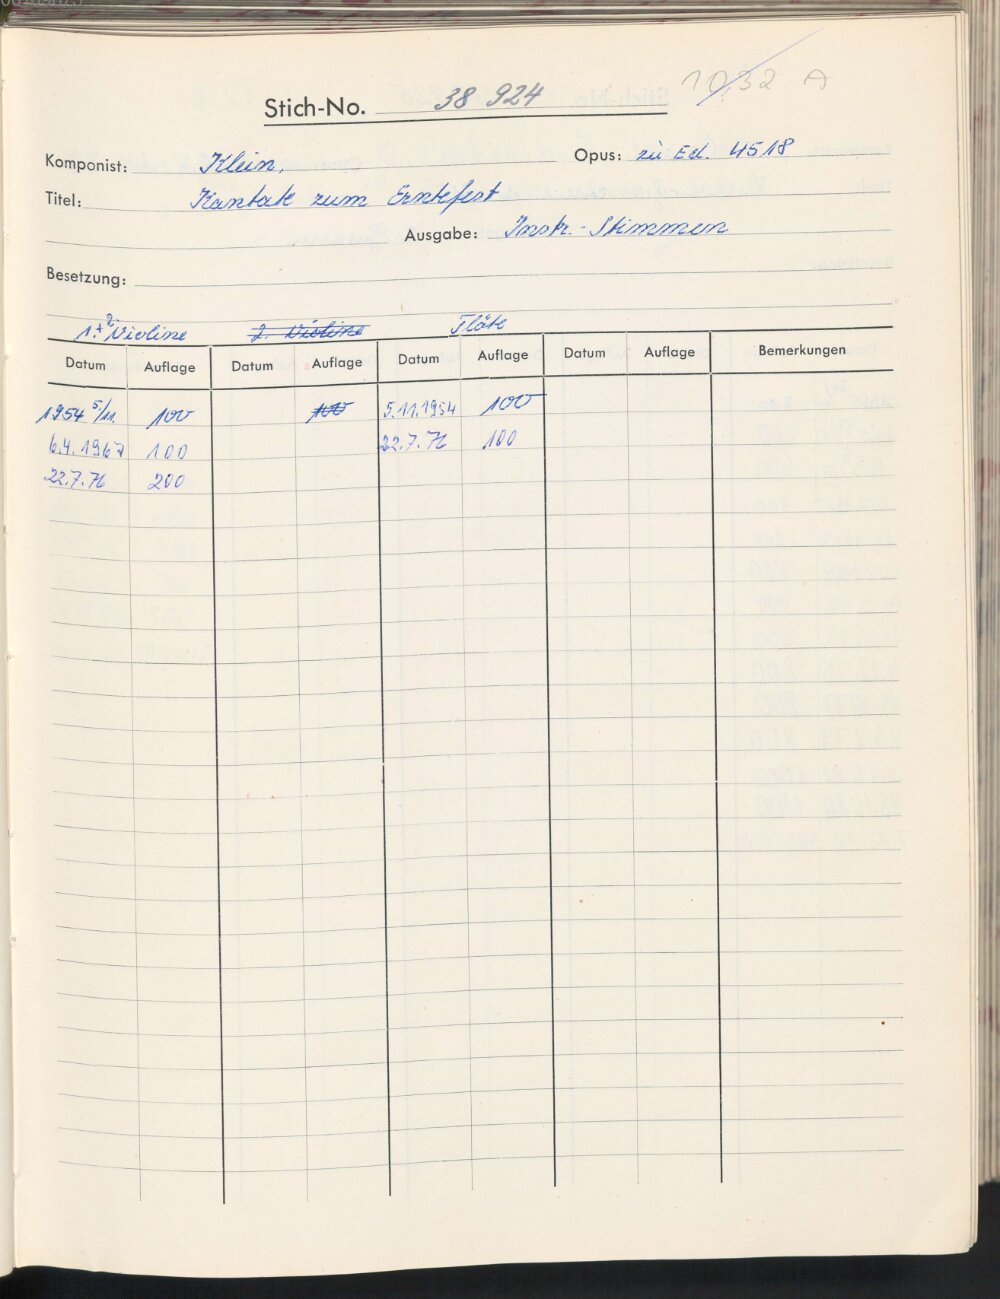 1032 A
Stich-No. 38 924
Komponist: Klein, Opus: zu Ed. 4518
Titel: Kantate zum Erntefest
Ausgabe: Instr.-Stimmen
Besetzung:
1.+2 Violine 2. Violine Flöte
Datum Auflage Datum Auflage Datum Auflage Datum Auflage Bemerkungen
1954 5/11. 100 100 5.11.1954 100
6.4.1967 100 22.7.76 100
22.7.76 200